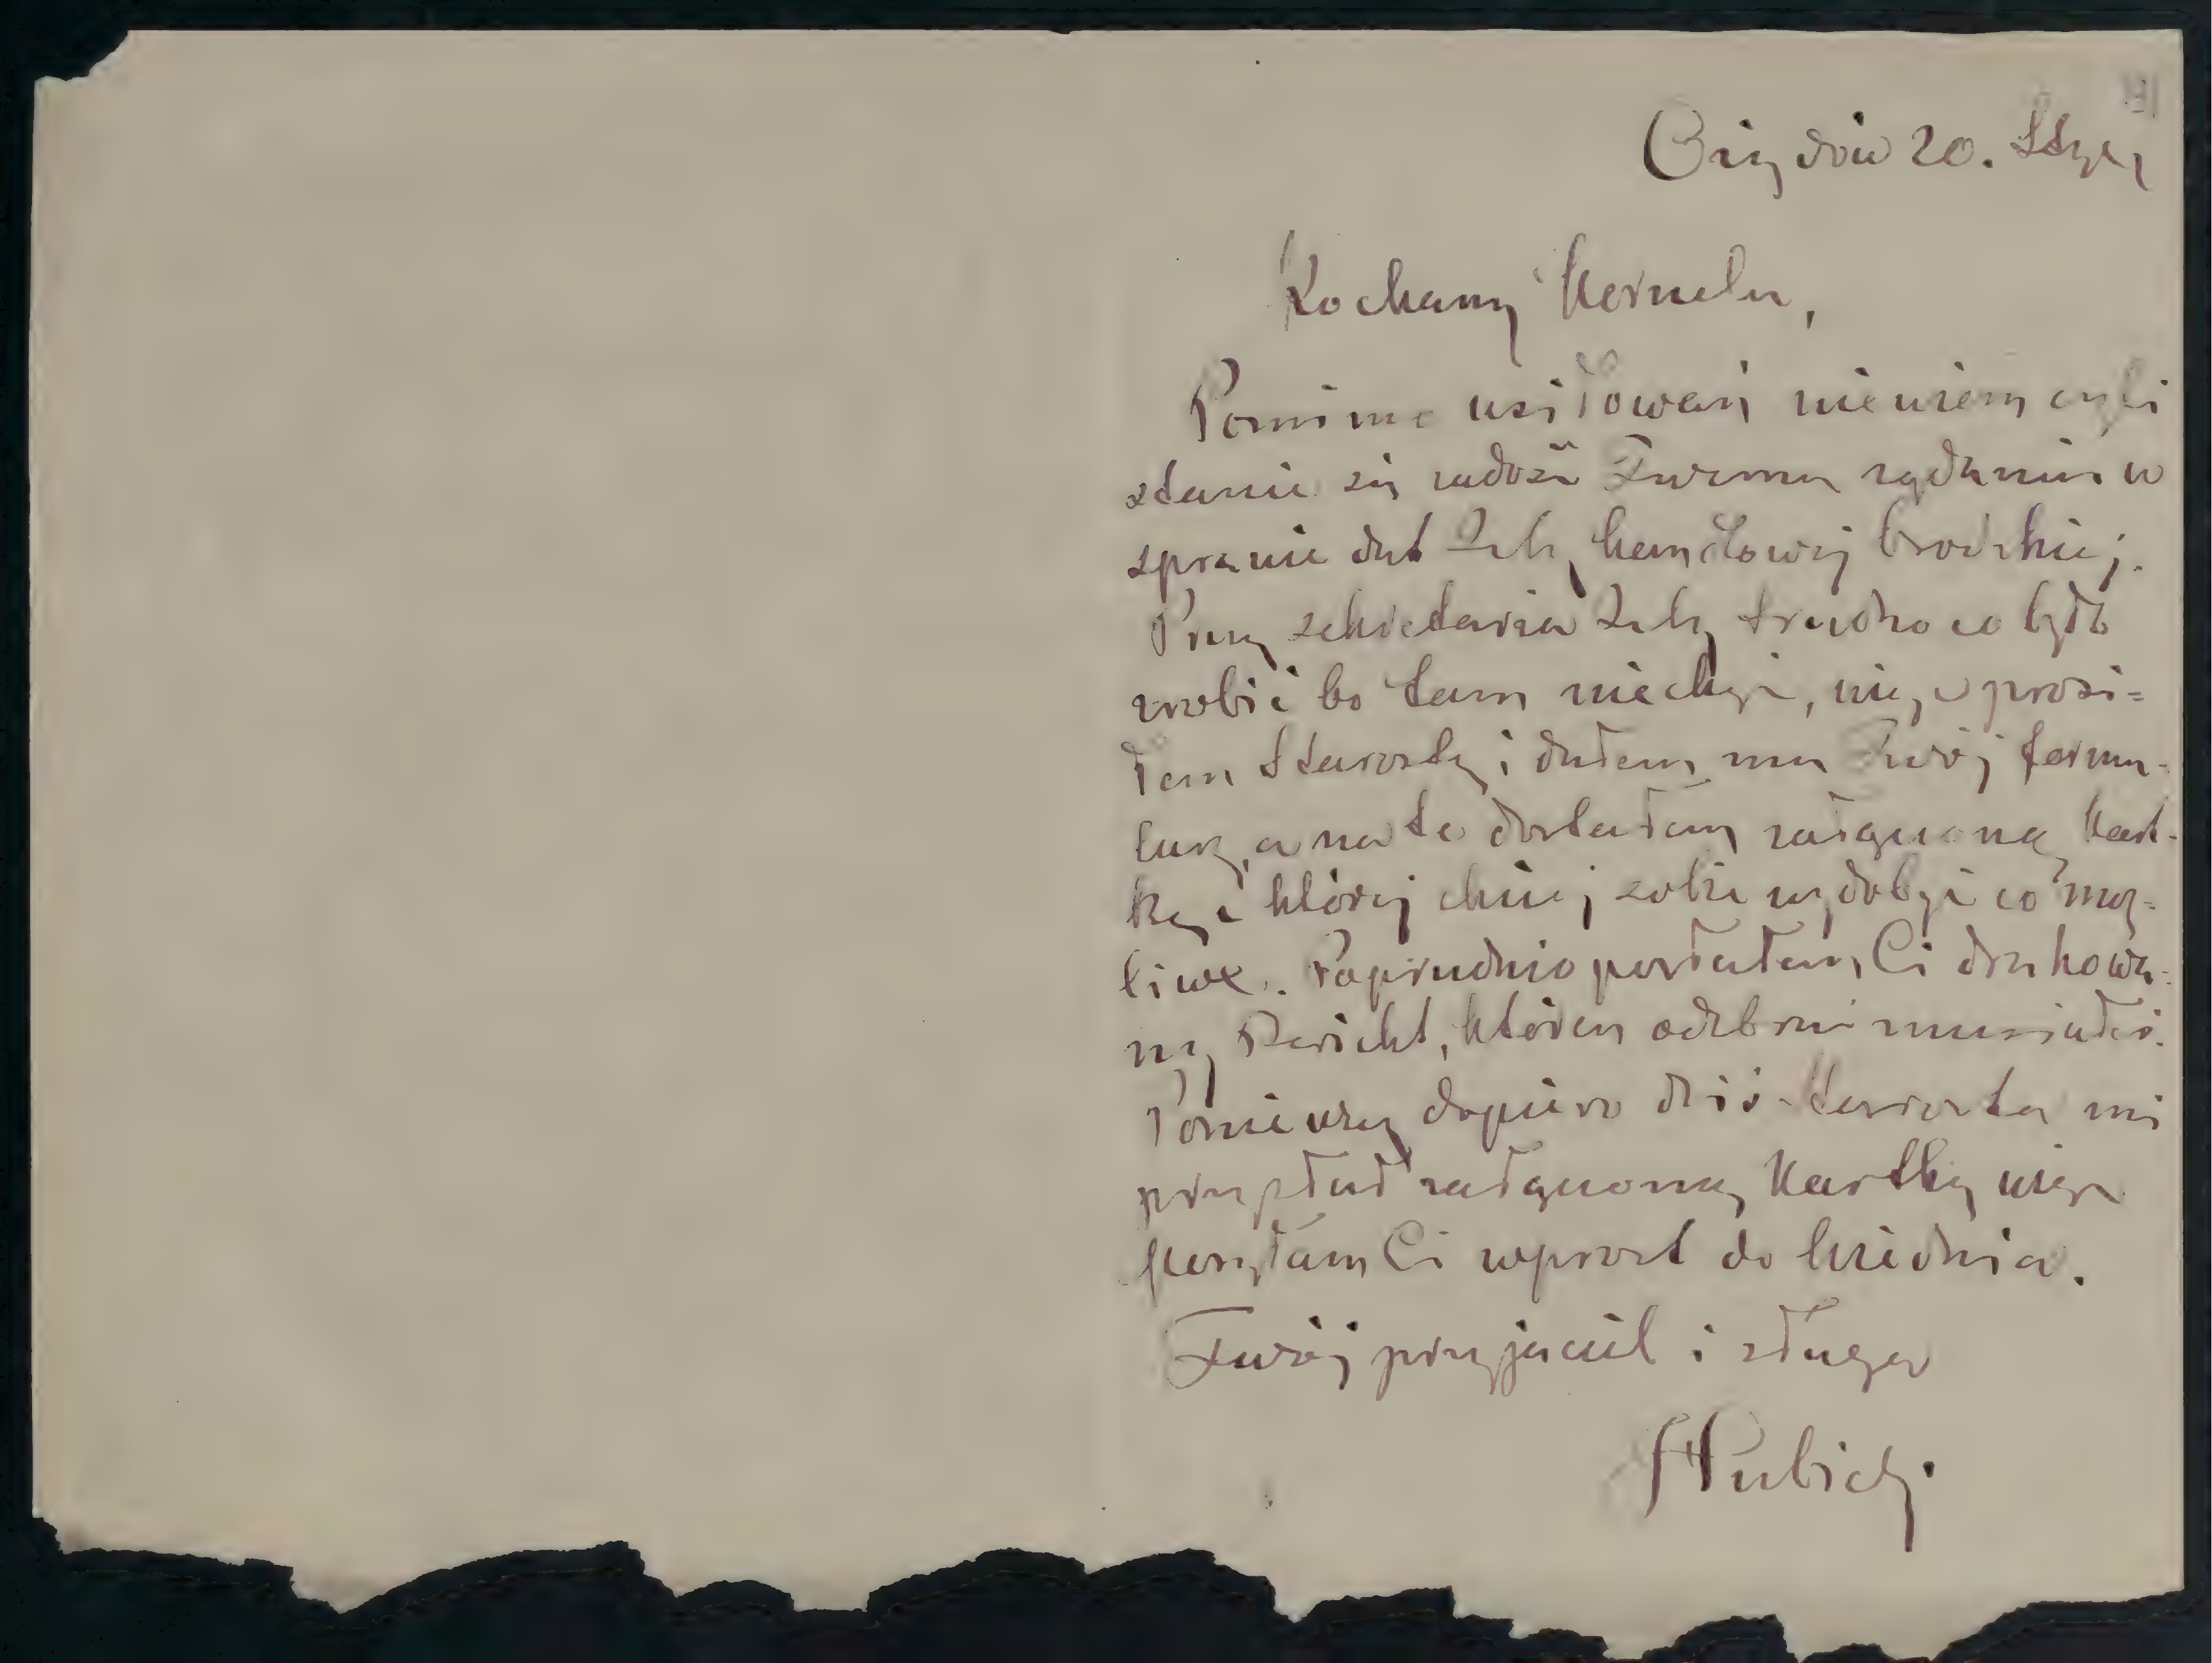 Ożydów 20. Stycz
Kochany Kornelu,
Pomimo usiłowań nie wiem czyli
stanie się zadość Twemu żądaniu w
sprawie dat Izby handlowej brodzkiej.
Przez sekretarza Izby trudno co było
zrobić bo tam niechęć, więc uprosi=
łem Starostę i dałem mu Twój formu-
larz, a na to dostałem załączoną Kart-
kę z której chciej sobie wydobyć co moż=
liwe. Poprzednio posłałem Ci drukowa=
ny Bericht, któren odebrać musiałeś.
Ponieważ dopiero dziś Starosta mi
przysłał załączoną Kartkę więc
posyłam Ci wprost do Wiednia.
Twój przyjaciel i sługa